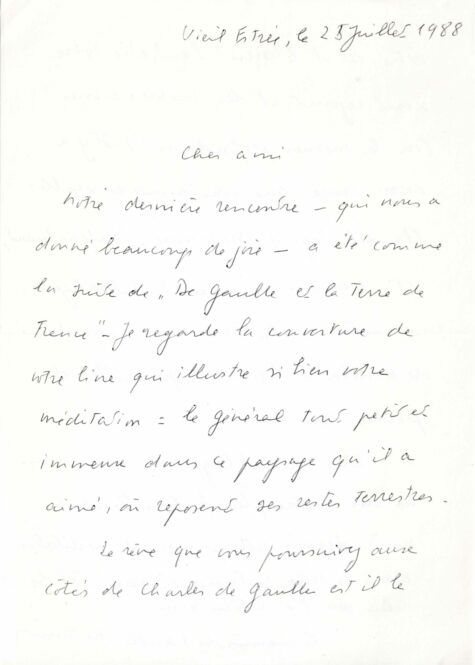 Vieil Estrée, le 25 Juillet 1988
Cher ami
Notre dernière rencontre – qui nous a
donné beaucoup de joie – a été comme
la suite de „De Gaulle et la Terre de
France" – Je regarde la couverture de
votre livre qui illustre si bien votre
méditation : le général tout petit et
immense dans ce paysage qu'il a
aimé, où reposent ses restes terrestres.
Le rêve que vous poursuivez aux
côtés de Charles de Gaulle est il le